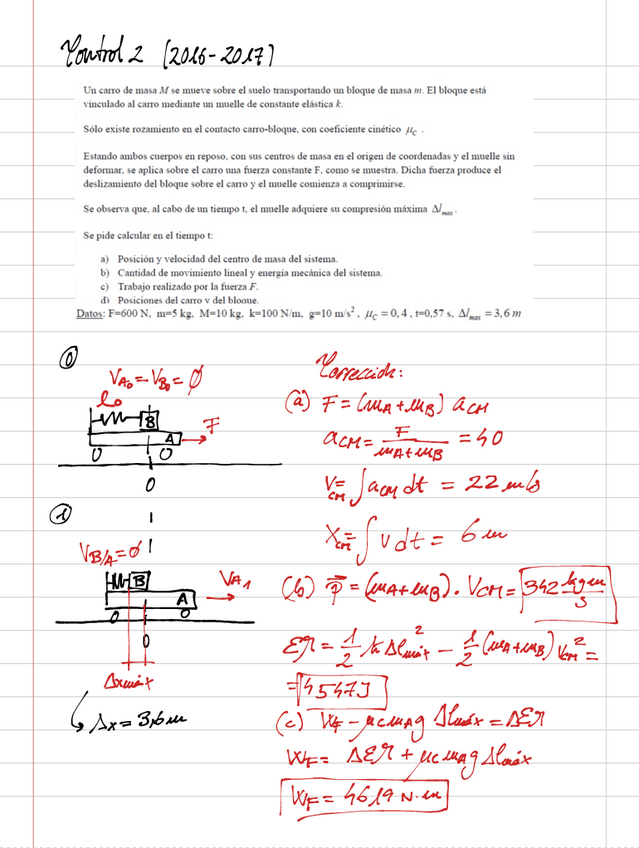 Control 2 (2016-2017)
Un carro de masa M se mueve sobre el suelo transportando un bloque de masa m. El bloque está
vinculado al carro mediante un muelle de constante elástica k.
Sólo existe rozamiento en el contacto carro-bloque, con coeficiente cinético μC .
Estando ambos cuerpos en reposo, con sus centros de masa en el origen de coordenadas y el muelle sin
deformar, se aplica sobre el carro una fuerza constante F, como se muestra. Dicha fuerza produce el
deslizamiento del bloque sobre el carro y el muelle comienza a comprimirse.
Se observa que, al cabo de un tiempo t, el muelle adquiere su compresión máxima Δlmax .
Se pide calcular en el tiempo t:
a) Posición y velocidad del centro de masa del sistema.
b) Cantidad de movimiento lineal y energía mecánica del sistema.
c) Trabajo realizado por la fuerza F.
d) Posiciones del carro y del bloque.
Datos: F=600 N, m=5 kg, M=10 kg, k=100 N/m, g=10 m/s², μC = 0,4, t=0,57 s, Δlmax = 3,6 m
0
VA0 = VB0 = ∅
l0
B
A
F
O
1
VB/A = ∅
B
A
VA1
O
Δxmáx
Δx = 3,6 m
Corrección:
(a) F = (mA + mB) aCM
aCM = F / (mA + mB) = 40
VCM = ∫ aCM dt = 22 m/s
XCM = ∫ v dt = 6 m
(b) p⃗ = (mA + mB) · VCM = 342 kg m / s
EM = 1/2 k Δlmáx² - 1/2 (mA + mB) VCM² =
= 4547 J
(c) WF - μC mA g Δlmáx = ΔEM
WF = ΔEM + μC mA g Δlmáx
WF = 4619 N·m